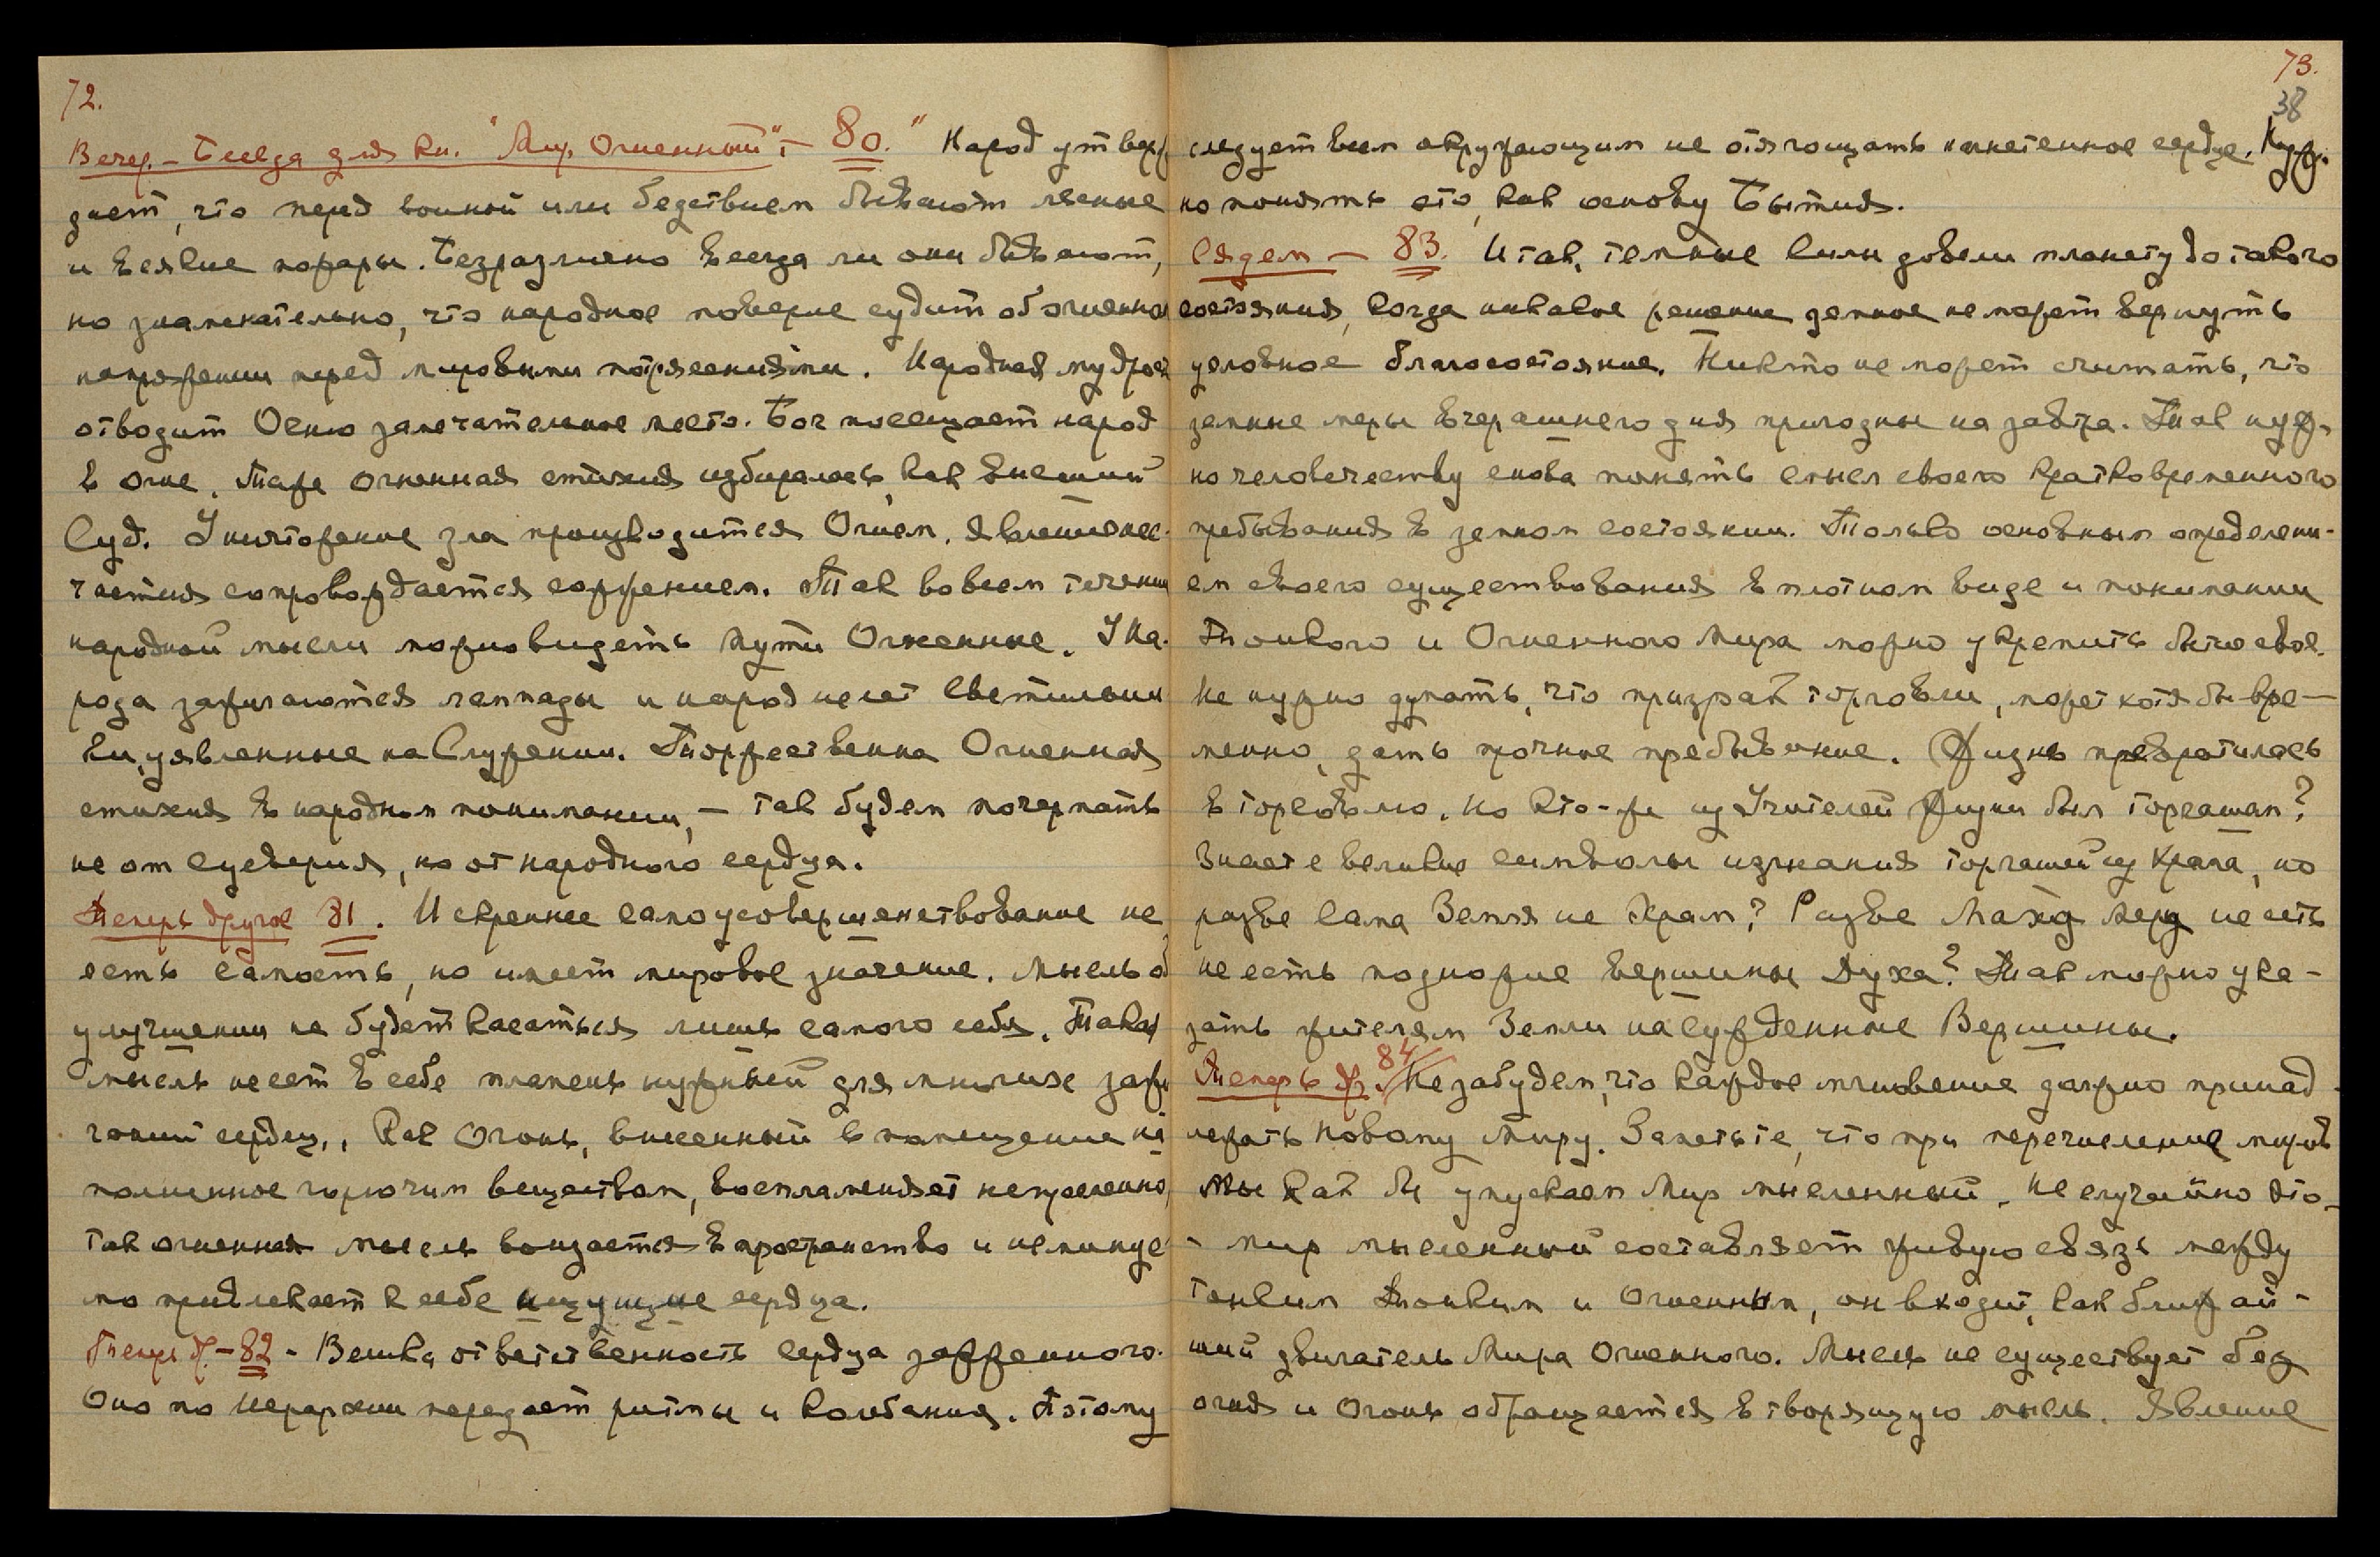 72.
Вечер. – Беседа для кн. "Мир Огненный" – 80. " Народ утверж
дает, что перед войной или бедствием бывают лесные
и всякие пожары. Безразлично всегда ли они бывают,
но знаменательно, что народное поверие судит об огненном
напряжении перед мировыми потрясениями. Народная мудрость
отводит Огню замечательное место. Бог посещает народ
в огне. Та же огненная стихия избиралась, как высший
Суд. Уничтожение зла производится Огнем. Явление нес-
частия сопровождается сожжением. Так во всем течении
народной мысли можно видеть пути Огненные. У на-
рода зажигаются лампады и народ несет светильни
ки, уявленные на Служении. Торжественна Огненная
стихия в народном понимании, – так будем почерпать
не от суеверия, но от народного сердца.
Теперь другое 81. Искреннее самоусовершенствование не
есть самость, но имеет мировое значение. Мысль об
улучшении не будет касаться лишь самого себя. Такая
мысль несет в себе пламень нужный для многих зажи
ганий сердец. Как Огонь, внесенный в помещение на
полненное горючим веществом, воспламеняет непреложно,
так огненная мысль вонзается в пространство и неминуе
мо привлекает к себе ищущие сердца.
Теперь др. – 82 – Велика ответственность сердца зажженного.
Оно по Иерархии передает ритмы и колебания. Поэтому
73.
38
следует всем окружающим не отягощать огненное сердце. Нуж-
но понять это, как основу Бытия.
Сядем – 83. Итак, темные силы довели планету до такого
состояния, когда никакое решение земное не может вернуть
условное благосостояние. Никто не может считать, что
земные меры вчерашнего дня пригодны на завтра. Так нуж-
но человечеству снова понять смысл своего кратковременного
пребывания в земном состоянии. Только основным определени-
ем своего существования в плотном виде и понимании
Тонкого и Огненного Мира можно укрепить бытие свое.
Не нужно думать, что призрак торговли, может хотя бы вре-
менно, дать прочное пребывание. Жизнь превратилась
в торговлю. Но кто-же из Учителей Жизни был торгашом?
Знаете великие символы изгнания торгашей из Храма, но
разве сама Земля не Храм? Разве Маха Меру не есть
не есть подножие вершины Духа? Так можно ука-
зать жителям Земли на сужденные Вершины.
Теперь др. 84 Не забудем, что каждое мгновение должно принад-
лежать Новому Миру. Заметьте, что при перечисление миров
Мы как бы упускаем Мир мысленный. Не случайно это –
– мир мысленный составляет живую связь между
тонким Тонким и Огненным, он входит, как ближай-
ший двигатель Мира Огненного. Мысль не существует без
огня и Огонь обращается в творящую мысль. Явление